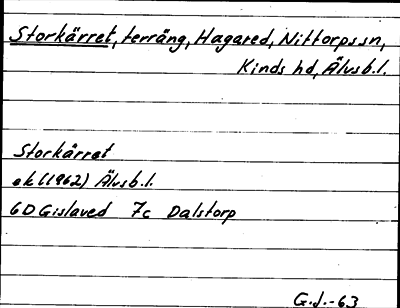 Storkärret, terräng, Hagared, Nittorps sn,
Kinds hd, Älvsb.l.
Storkärret
ek (1962) Älvsb.l.
6D Gislaved 7c Dalstorp
G.J.-63